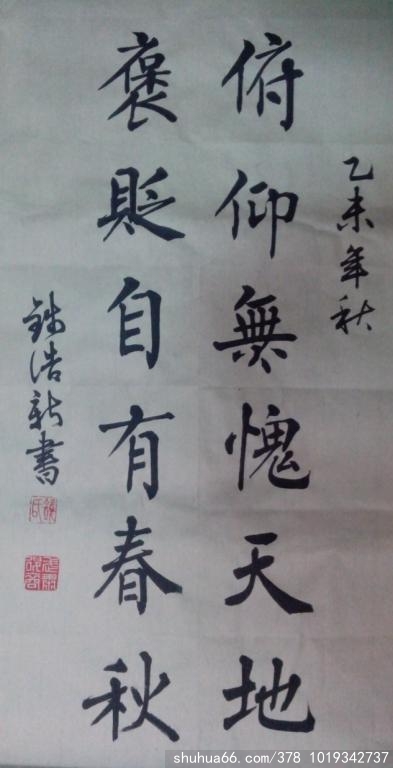 乙未年秋
俯仰無愧天地
褒貶自有春秋
浩新書
shuhua66.com/378 1019342737